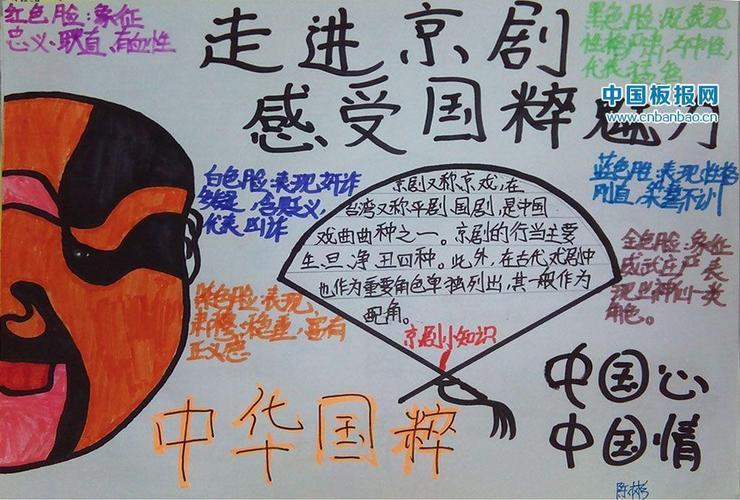 红色脸:象征
忠义、耿直、有血性
走进京剧
感受国粹魅力
黑色脸:既表现
性格严肃,不
代表
中国板报网
www.cnbanbao.cn
白色脸:表现奸诈
多疑,含贬义,
代表凶诈
京剧又称京戏,在
台湾又称平剧、国剧,是中国
戏曲曲种之一。京剧的行当主要
生、旦、净、丑四种。此外,在古代戏剧中
也作为重要角色单独列出,其一般作为
配角。
京剧小知识
蓝色脸:表现性格
刚直,桀骜不训
金色脸:象征
威武庄严
现 神仙一类
角色。
色脸:表现,
肃穆、稳重,富有
正义感
中华国粹
中国心
中国情
陈彬